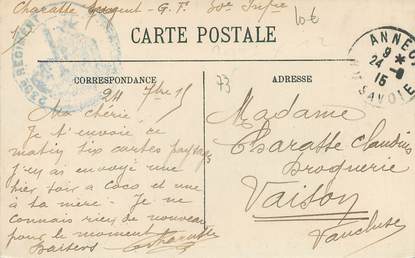 Charasse Sergent - G. F. 30e Infie
10€
CARTE POSTALE
CORRESPONDANCE
ADRESSE
73
ANNECY
9 *
24 - 9
15
SAVOIE
REGIMENT
24 7bre 15
Ma chérie,
Je t'envoie ce
matin six cartes paysages
J'en ai envoyé une
hier soir a Coco et une
à ta mère. Je ne
connais rien de nouveau
pour le moment
Baisers Charasse
Madame
Charasse Claudius
Droguerie
Vaison
Vaucluse